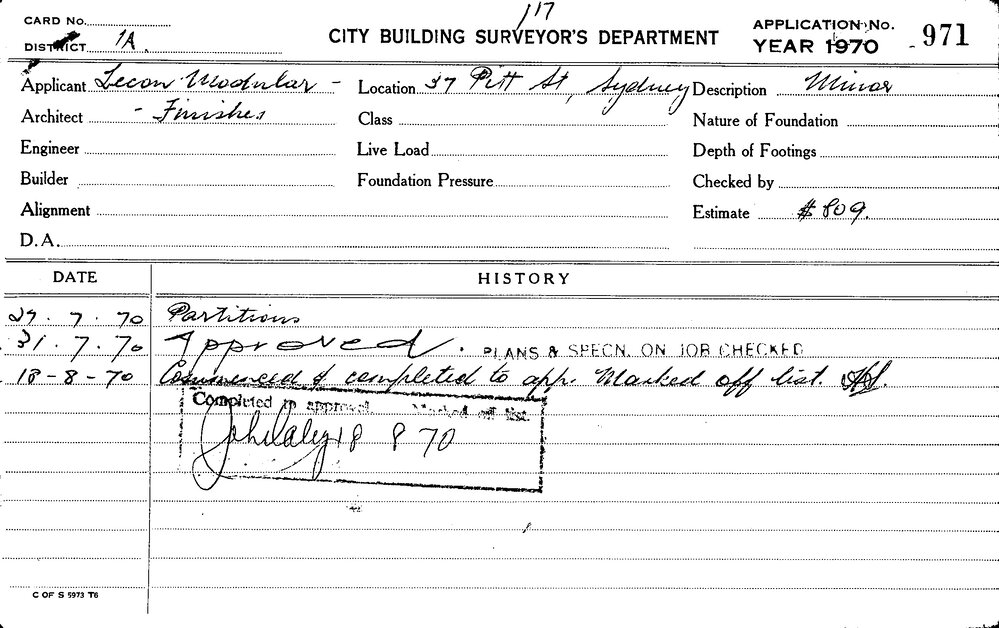 117
CARD No.
DISTRICT 1A.
CITY BUILDING SURVEYOR'S DEPARTMENT
APPLICATION No.
YEAR 1970
971
Applicant Lecon Modular -
Location 37 Pitt St, Sydney
Description Minor
Architect - Finishes
Class
Nature of Foundation
Engineer
Live Load
Depth of Footings
Builder
Foundation Pressure
Checked by
Alignment
Estimate $809.
D.A.
DATE HISTORY
29. 7. 70 Partitions
31. 7. 70 Approved. PLANS & SPECN. ON JOB CHECKED
18-8-70 Commenced & completed to app. Marked off list.
Completed to approval Marked off list.
18 8 70
C OF S 5973 T6